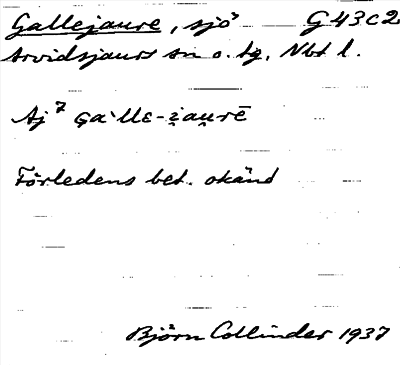 Gallejaure, sjö G43c2
Arvidsjaurs sn o. tg, Nbt l.
Aj⁷ ɢa`llɛ-i̯au̯rē
Förledens bet. okänd
Björn Collinder 1937